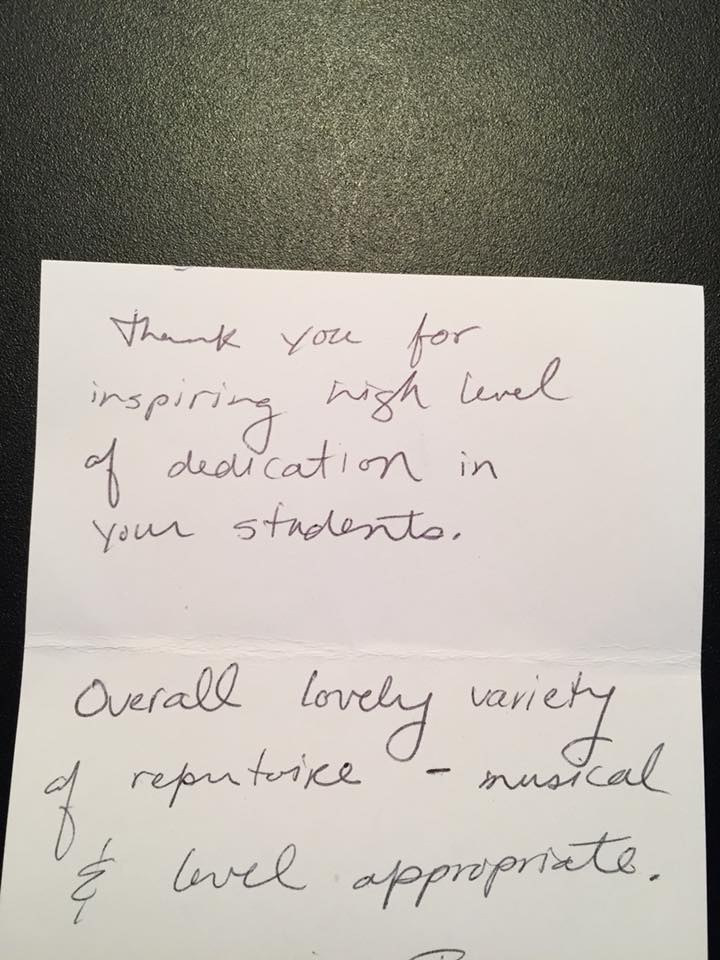 Thank you for
inspiring high level
of dedication in
your students.
Overall lovely variety
of reputoire - musical
& level appropriate.